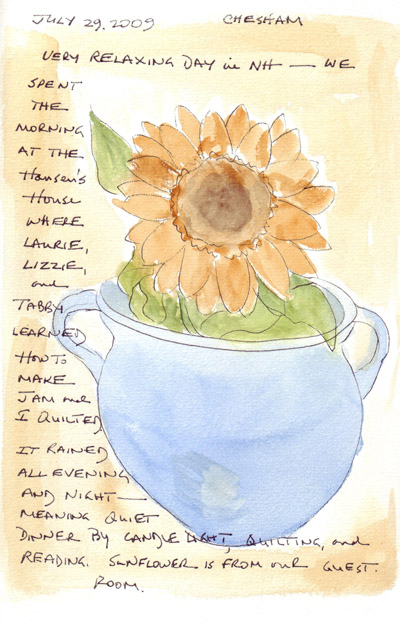 JULY 29, 2009 CHESHAM
VERY RELAXING DAY in NH — WE
SPENT
THE
MORNING
AT THE
Hansen's
House
WHERE
LAURIE,
LIZZIE,
and
TABBY
LEARNED
HOW TO
MAKE
JAM and
I QUILTED
IT RAINED
ALL EVENING
AND NIGHT —
MEANING QUIET
DINNER BY CANDLE LIGHT, QUILTING, and
READING. SUNFLOWER IS FROM OUR GUEST
ROOM.